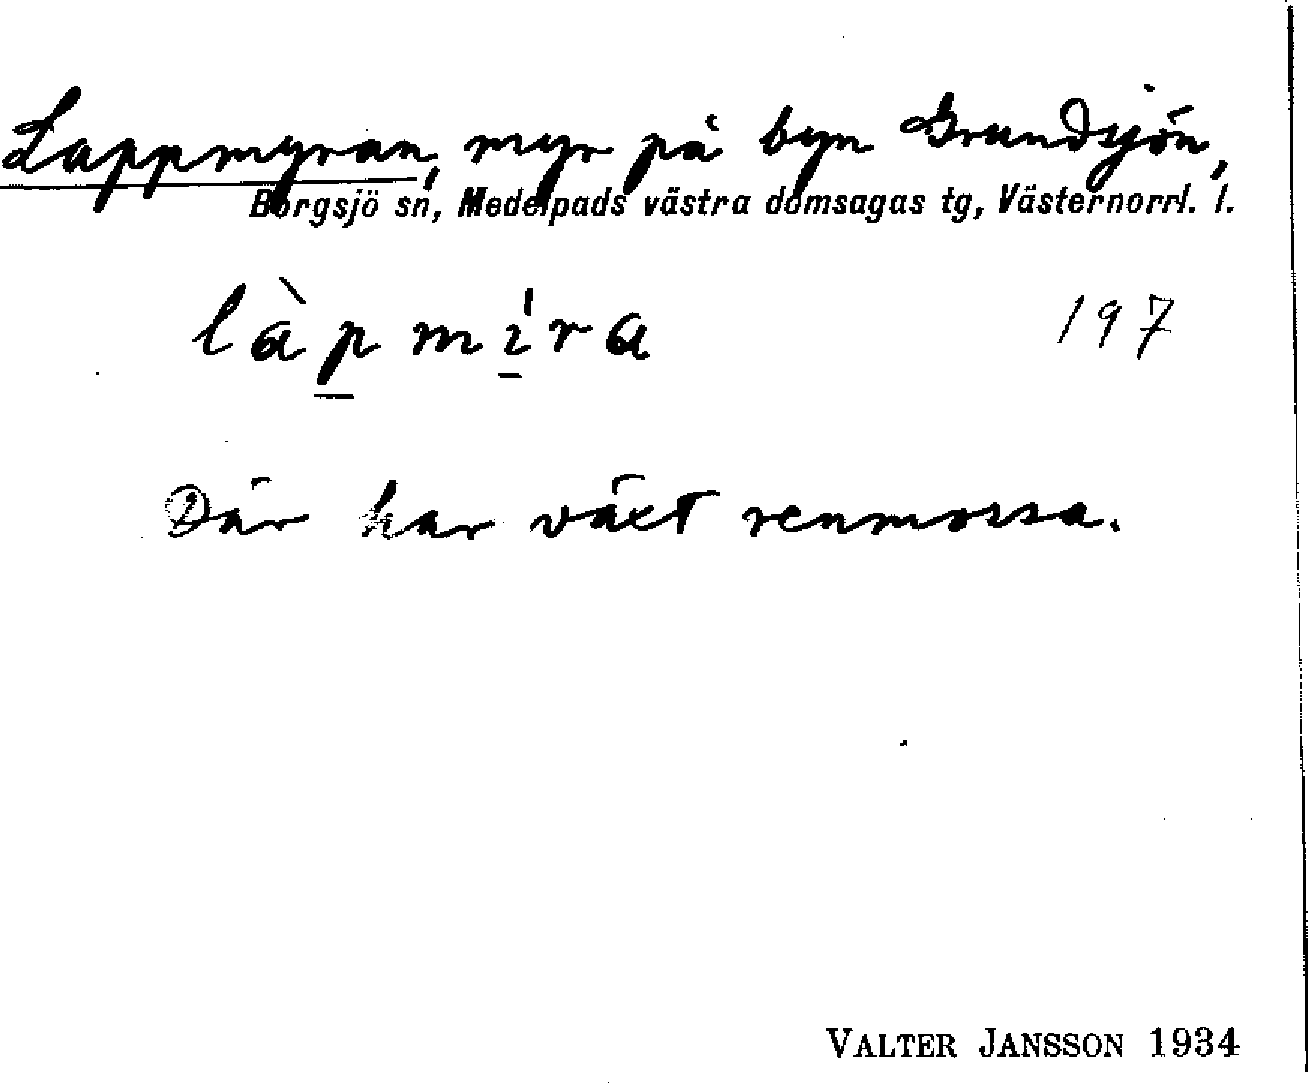 Lappmyran, myr på byn Grundsjön,
Borgsjö sn, Medelpads västra domsagas tg, Västernorrl. l.
làpmíra 197
Där har växt renmossa.
VALTER JANSSON 1934